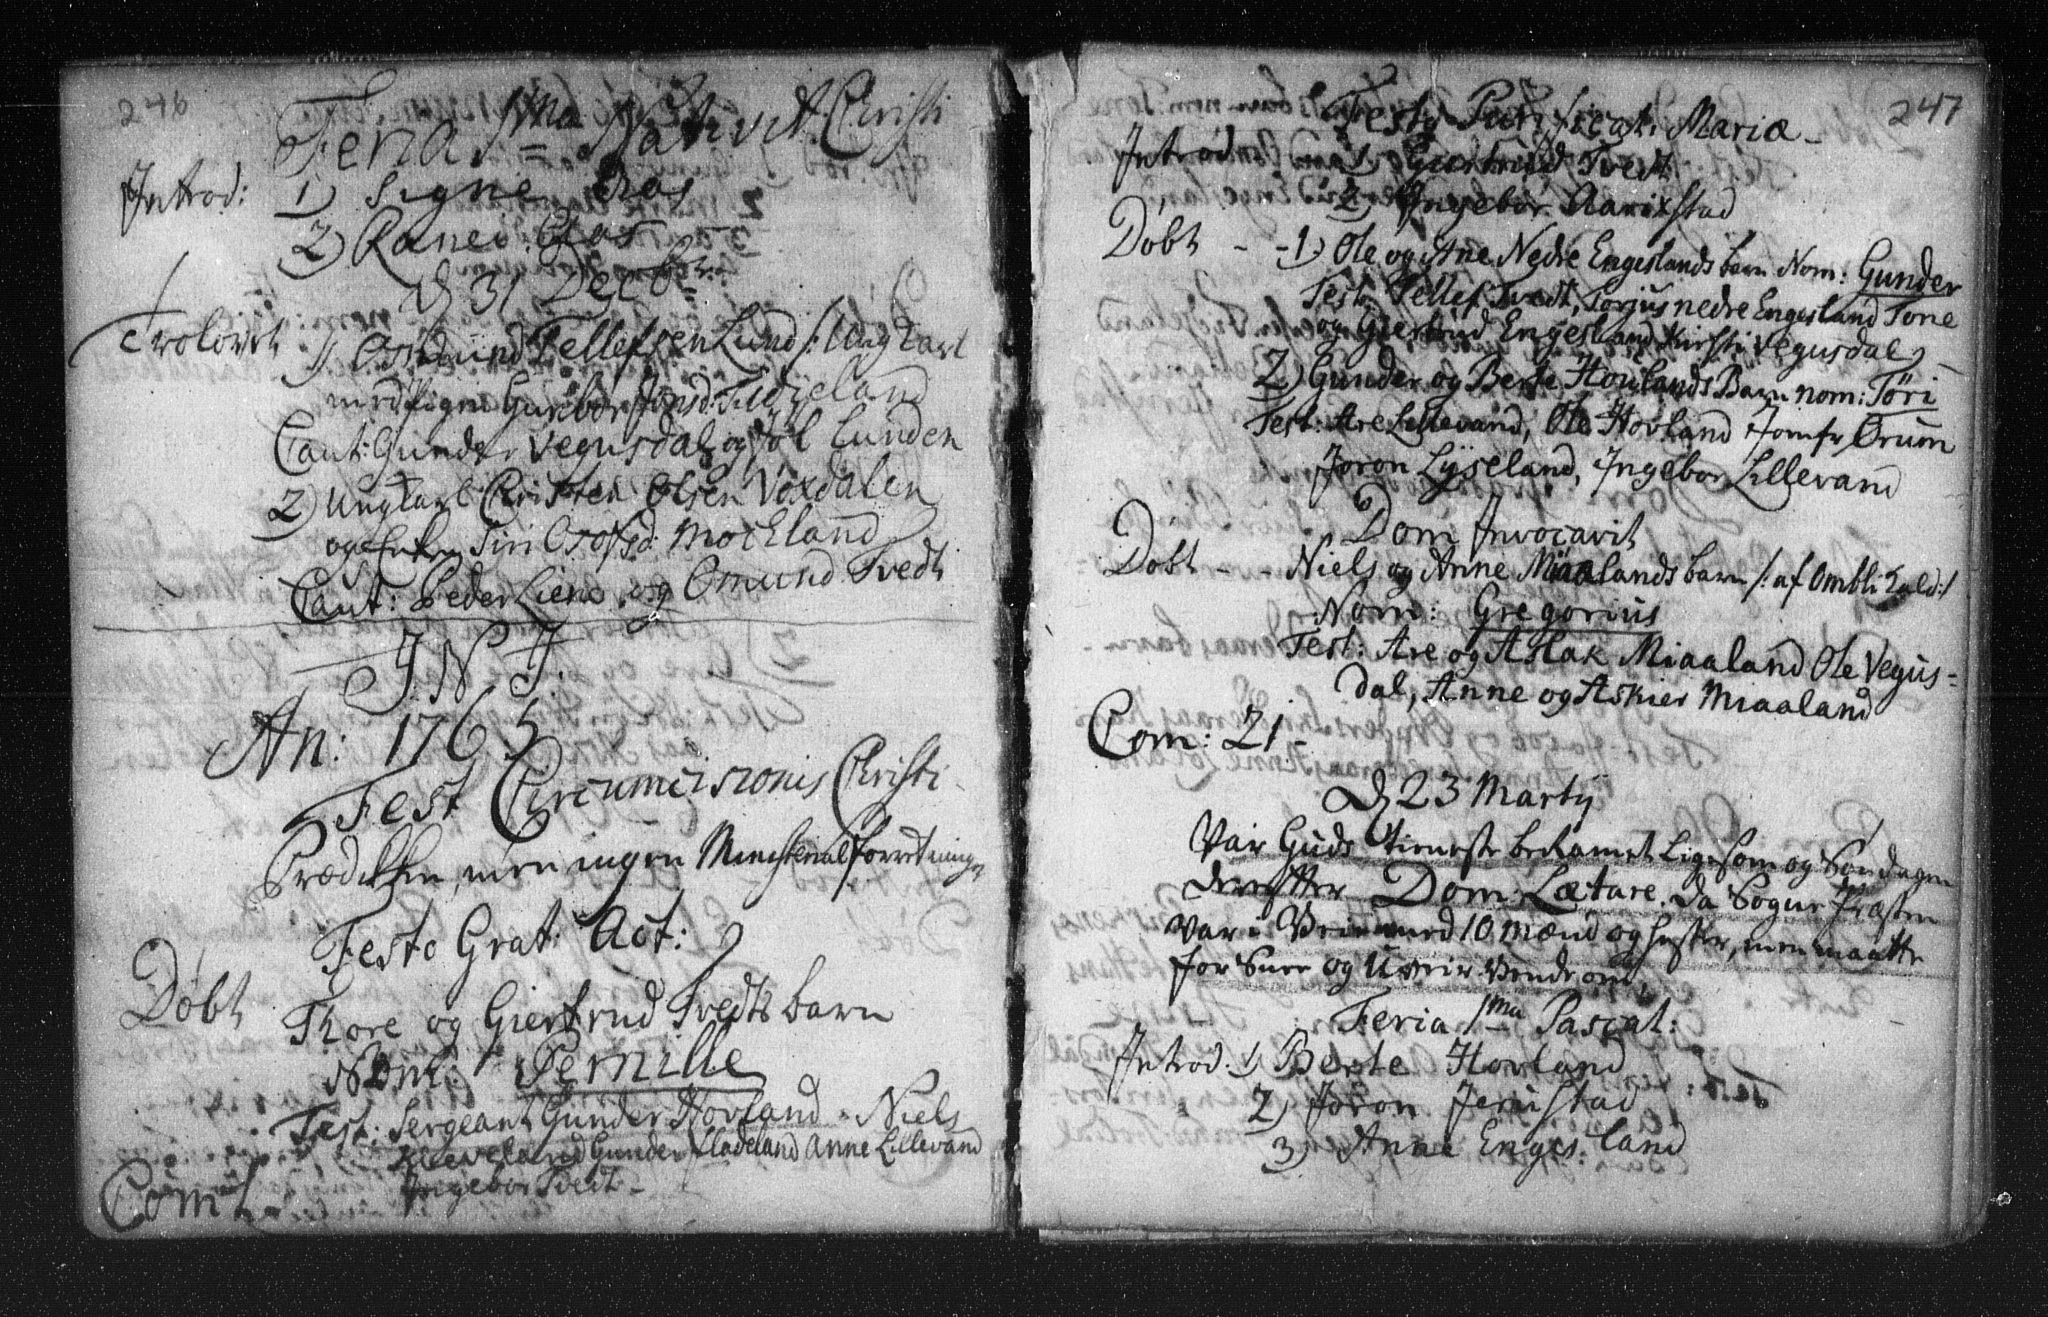 246
Feria 1ma Nativit: Christi
Introd: 1) Signe Aas
2) Ranei Aas
D 31 Decbr:
Trolovet 1) Osmund Tellefsen Lund /: Ungkarl
med Pigen Gunbor Jonsd: Fidieland
Caut: Gunder Vegusdal og Jöl Lunden
2) Ungkarl Christen Olsen Voxdalen
og Enken Siri Osolfsd: Mocland
Caut: Peder Liene og Omund Tvedt
J. N. J.
An: 1765
Fest Circumcisionis Christi
Prædikken, men ingen Ministerial forretning
Festo Grat: Act:
Døbt Thore og Giertrud Tvedts barn
Nom: Pernille
Test: Sergeant Gunder Hovland - Niels
Kleveland Gunder Fladeland Anne Lillevand
Ingebor Tvedt -
Com
247
Festo Purificat: Mariæ -
Introd 1) Giertrud Tvedt
2) Ingebor Aarikstad
Døbt - - 1) Ole og Ane Nedre Engeslands barn Nom: Gunder
Test: Tellef Tvedt, Torjus nedre Engesland Tone
og Giertrud Engesland Kirsti Vegusdal
2) Gunder og Berte Hovlands Barn nom: Tøri
Test: Are Lillevand, Ole Hovland Jomfr Ørum
Joron Lyseland, Ingebor Lillevand
Dom Invocavit
Døbt - - Niels og Anne Miaalands barn /: af Ombli Kald :/
Nom: Gregorius
Test: Are og Aslak Miaaland Ole Vegus-
dal, Anne og Askier Miaaland
Com: 21 -
D 23 Martij
Var Guds tieneste bekamet ligesom og Søndagen
derefter Dom: Lætare. da Sogne Præsten
var i Veien med 10 mænd og hester, men maatte
for Snee og Uveir Vende om,
Feria 1ma Pascat:
Introd: 1) Berte Hovland
2) Joron Jerustad
3) Anne Enges: land